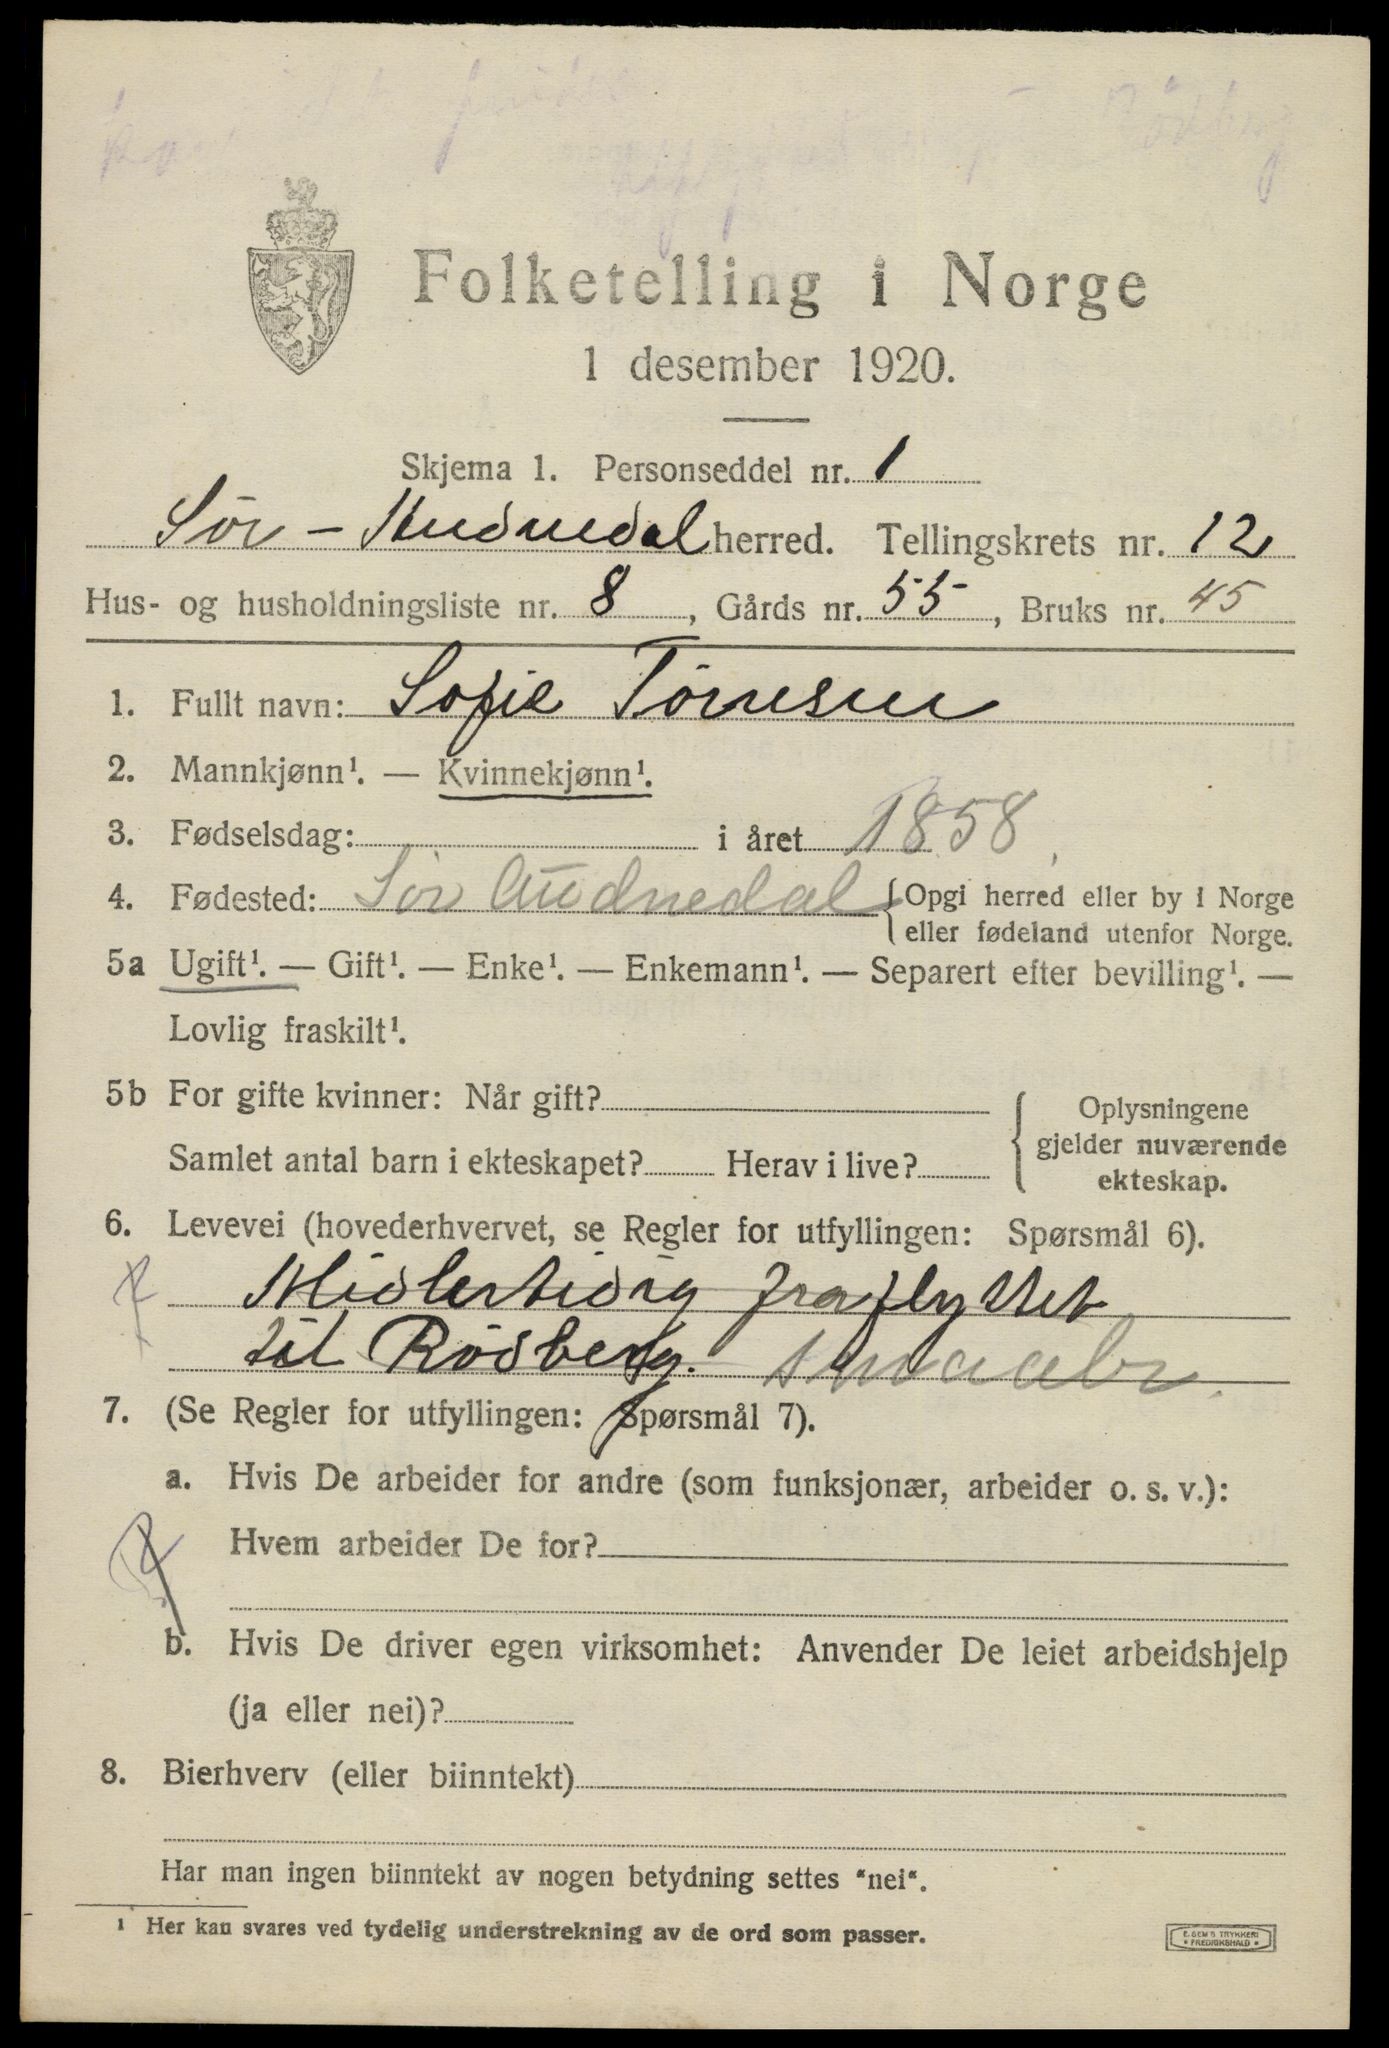 Folketelling i Norge
1 desember 1920.
Skjema 1. Personseddel nr. 1
Sör-Audnedal herred. Tellingskrets nr. 12
Hus- og husholdningsliste nr. 8, Gårds nr. 55, Bruks nr. 45
1. Fullt navn: Sofie Törresen
2. Mannkjønn¹. — Kvinnekjønn¹.
3. Fødselsdag: i året 1858.
4. Fødested: Sör Audnedal {Opgi herred eller by i Norge
eller fødeland utenfor Norge.
5a Ugift¹. — Gift¹. — Enke¹. — Enkemann¹. — Separert efter bevilling¹. —
Lovlig fraskilt¹.
5b For gifte kvinner: Når gift?
Samlet antal barn i ekteskapet? Herav i live?
{ Oplysningene
gjelder nuværende
ekteskap.
6. Levevei (hovederhvervet, se Regler for utfyllingen: Spørsmål 6).
Midlertidig fraflyttet
til Rödberg. smaabr.
7. (Se Regler for utfyllingen: Spørsmål 7).
a. Hvis De arbeider for andre (som funksjonær, arbeider o. s. v.):
Hvem arbeider De for?
b. Hvis De driver egen virksomhet: Anvender De leiet arbeidshjelp
(ja eller nei)?
8. Bierhverv (eller biinntekt)
Har man ingen biinntekt av nogen betydning settes "nei".
¹ Her kan svares ved tydelig understrekning av de ord som passer.
E. SEM'S TRYKKERI
* FREDRIKSHALD *